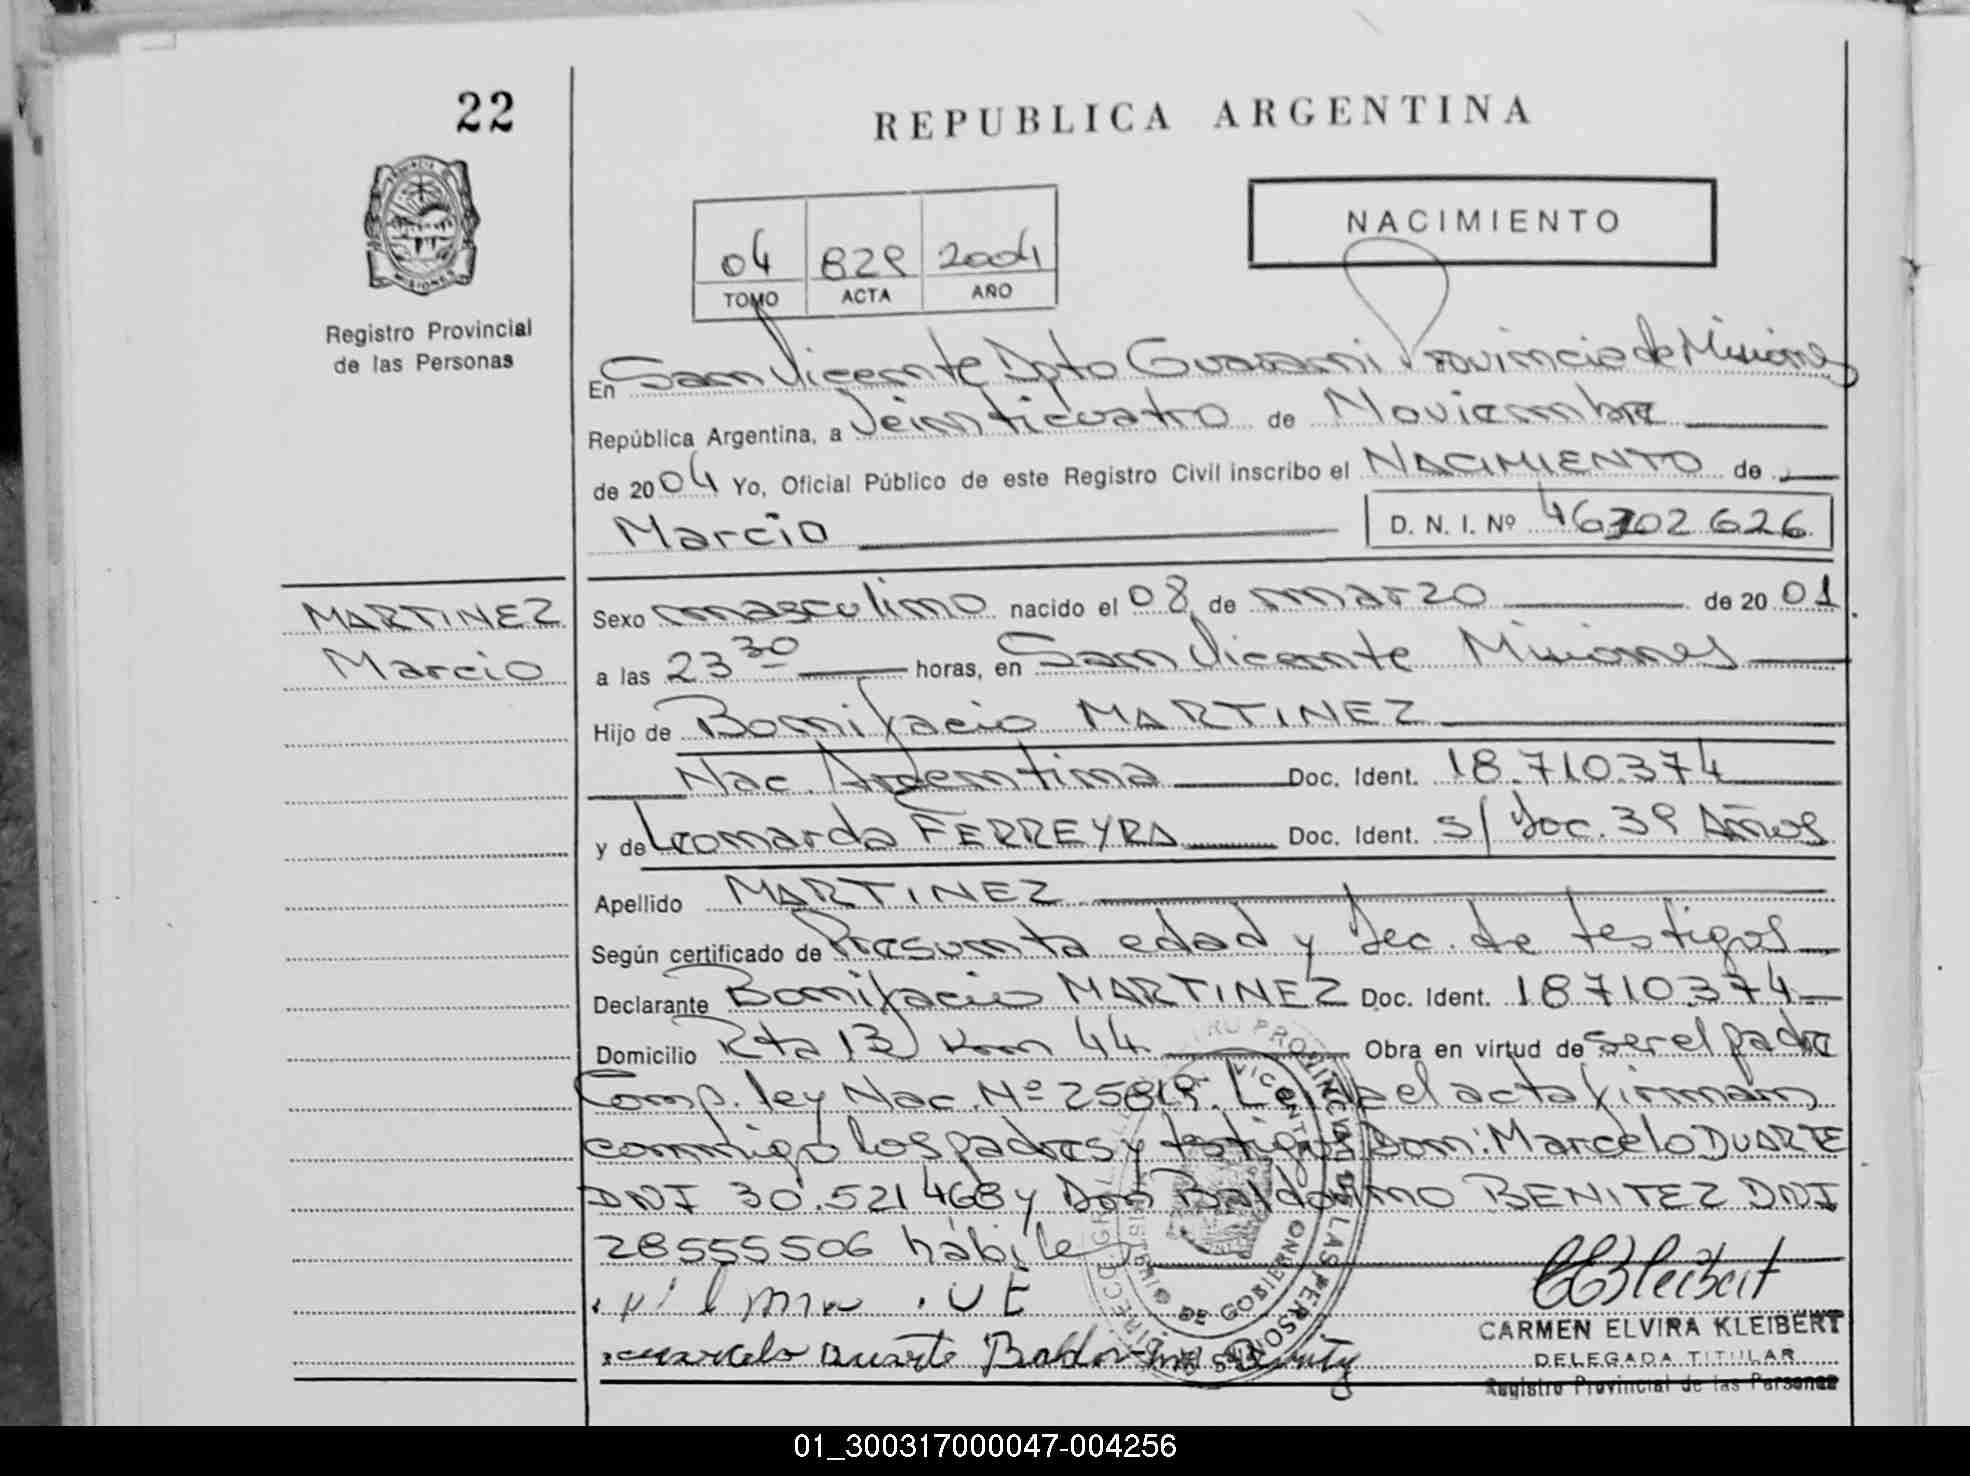 22
REPUBLICA ARGENTINA
NACIMIENTO
04 829 2004
TOMO ACTA AÑO
PROVINCIA DE MISIONES
Registro Provincial
de las Personas
En San Vicente Dpto Guarani Provincia de Misiones
República Argentina, a Veinticuatro de Noviembre
de 2004 Yo, Oficial Público de este Registro Civil inscribo el NACIMIENTO de
Marcio D. N. I. Nº 46302626
MARTINEZ
Marcio
Sexo masculino nacido el 08 de marzo de 2001
a las 23 30 horas, en San Vicente Misiones
Hijo de Bonifacio MARTINEZ
Nac. Argentina Doc. Ident. 18.710.374
y de Leonarda FERREYRA Doc. Ident. s/ Doc. 39 Años
Apellido MARTINEZ
Según certificado de Presunta edad y Dec. de testigos
Declarante Bonifacio MARTINEZ Doc. Ident. 18710374
Domicilio Rta 13 Km 44 Obra en virtud de ser el padre
Comp. ley Nac. Nº 25819. Leida el acta firman
conmigo los padres y testigos Don: Marcelo DUARTE
DNI 30.521468 y Don Baldovino BENITEZ DNI
28555506 hábile
Marcelo Duarte
CARMEN ELVIRA KLEIBERT
DELEGADA TITULAR
Registro Provincial de las Personas
01_300317000047-004256